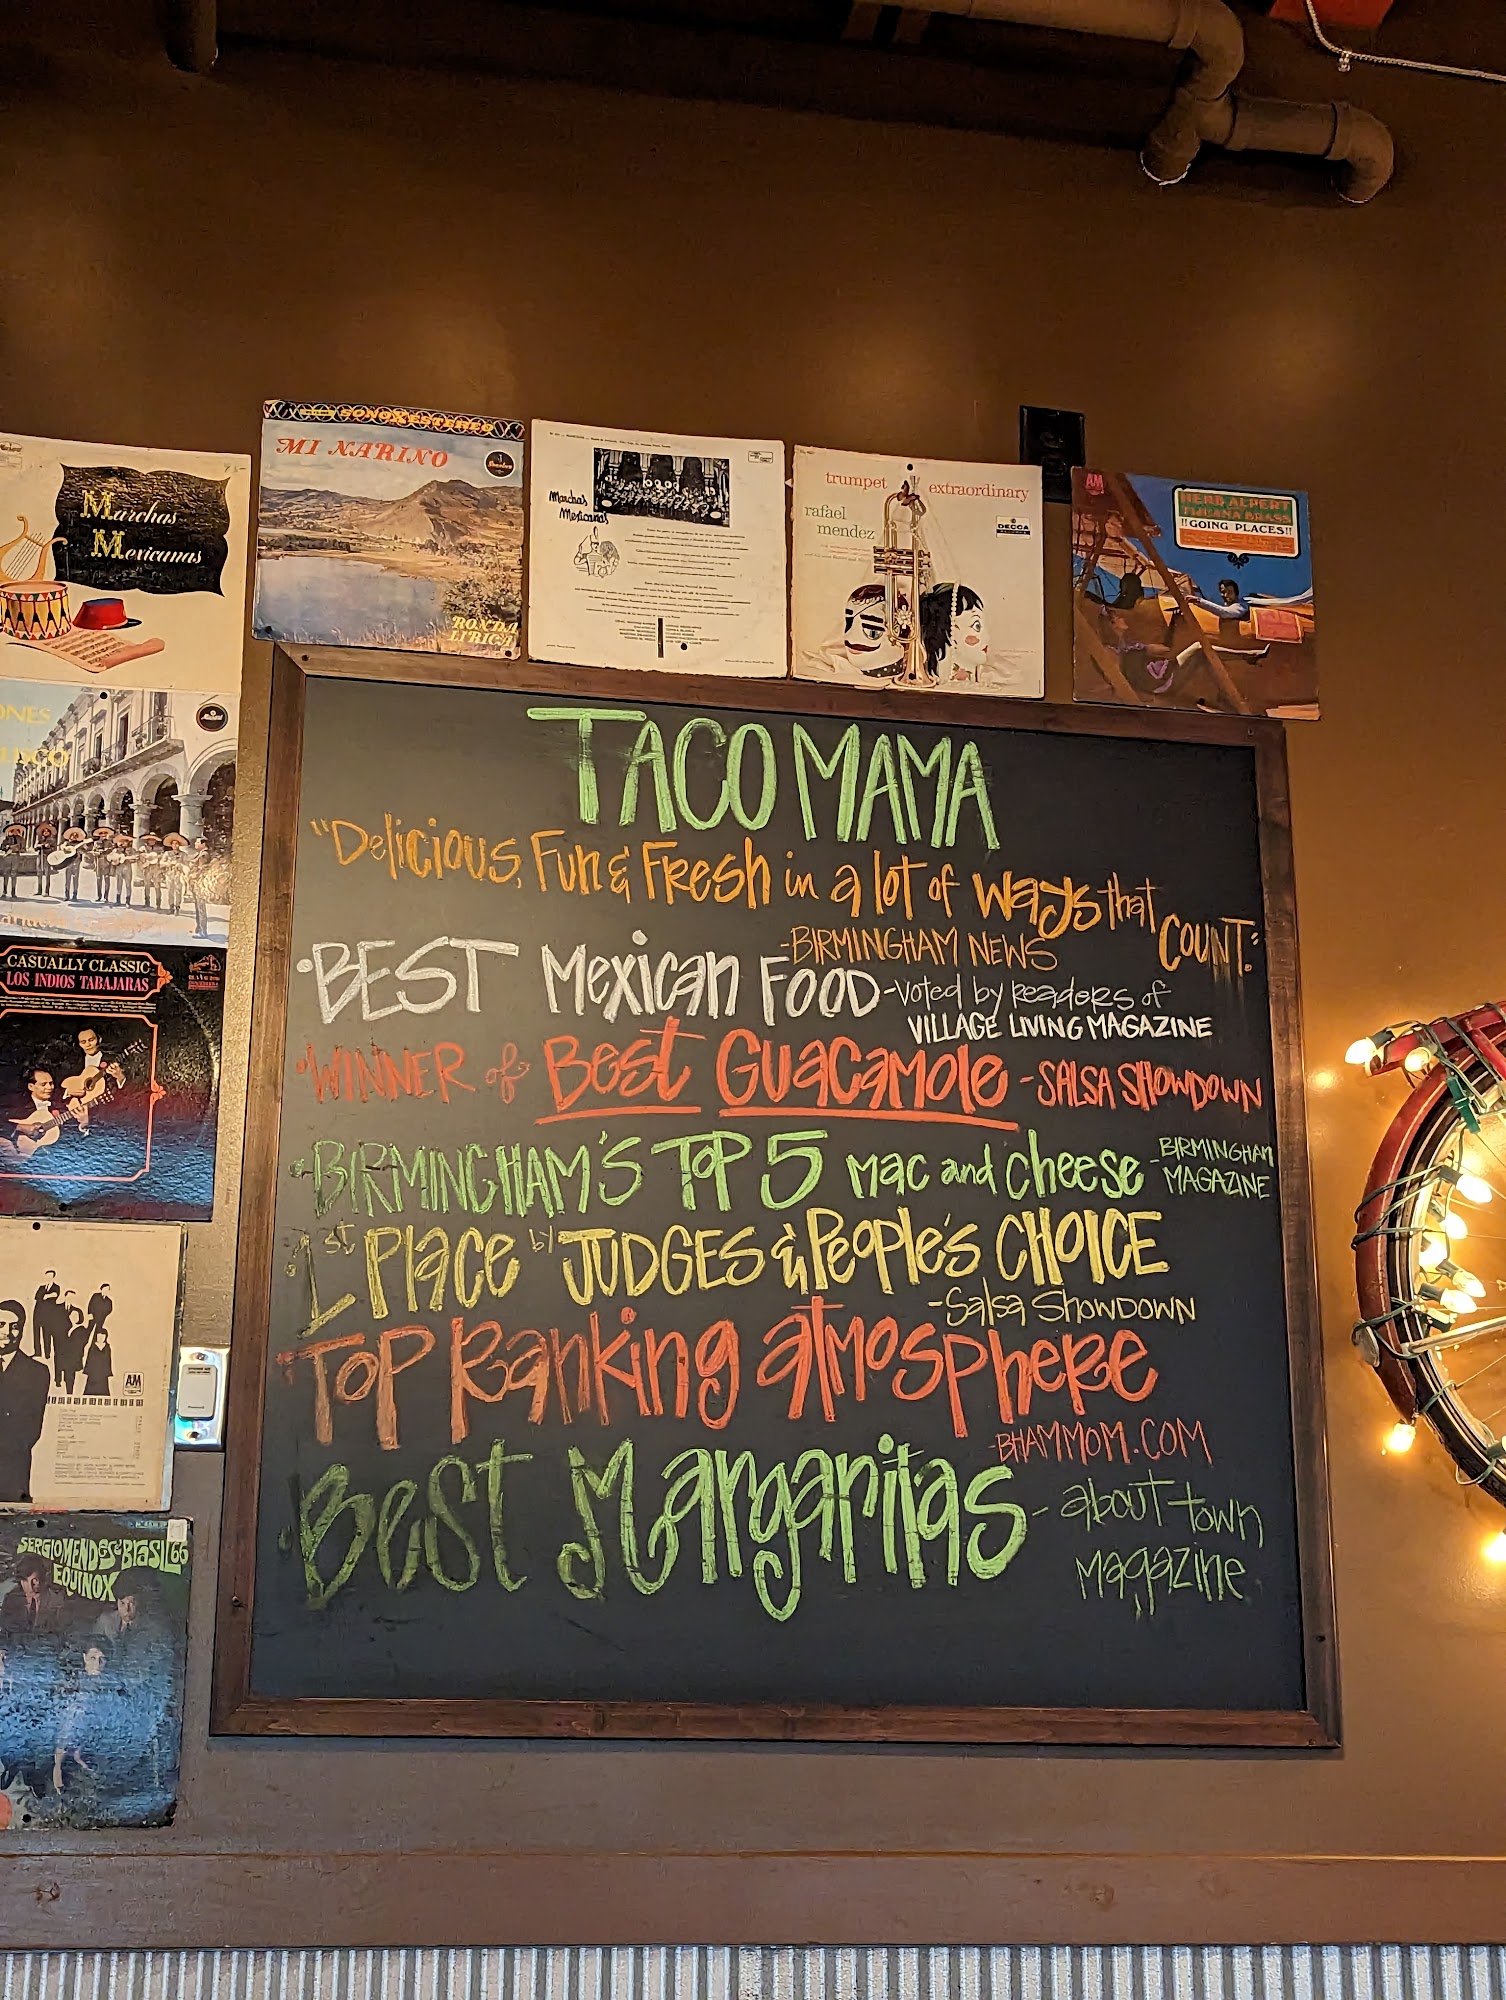 SONOX ESTEREO
MI NARINO
RONDA
LIRICA
Marchas
Mexicanas
Marchas
Mexicanas
trumpet extraordinary
rafael
mendez
DECCA
HERB ALPERT
TIJUANA BRASS
!!GOING PLACES!!
CASUALLY CLASSIC
LOS INDIOS TABAJARAS
A&M
SERGIO MENDES & BRASIL 66
EQUINOX
TACO MAMA
"Delicious, Fun & Fresh in a lot of ways that COUNT."
-BIRMINGHAM NEWS
•BEST Mexican FOOD -Voted by readers of
VILLAGE LIVING MAGAZINE
•WINNER of Best GUACAMOLE -SALSA SHOWDOWN
•BIRMINGHAM'S TOP 5 Mac and cheese -BIRMINGHAM
MAGAZINE
•1st PLACE by JUDGES & PeOPle's CHOICE
-Salsa SHOWDOWN
•TOP Ranking atmosphere
-BHAMMOM.COM
•Best Margaritas - about town
magazine